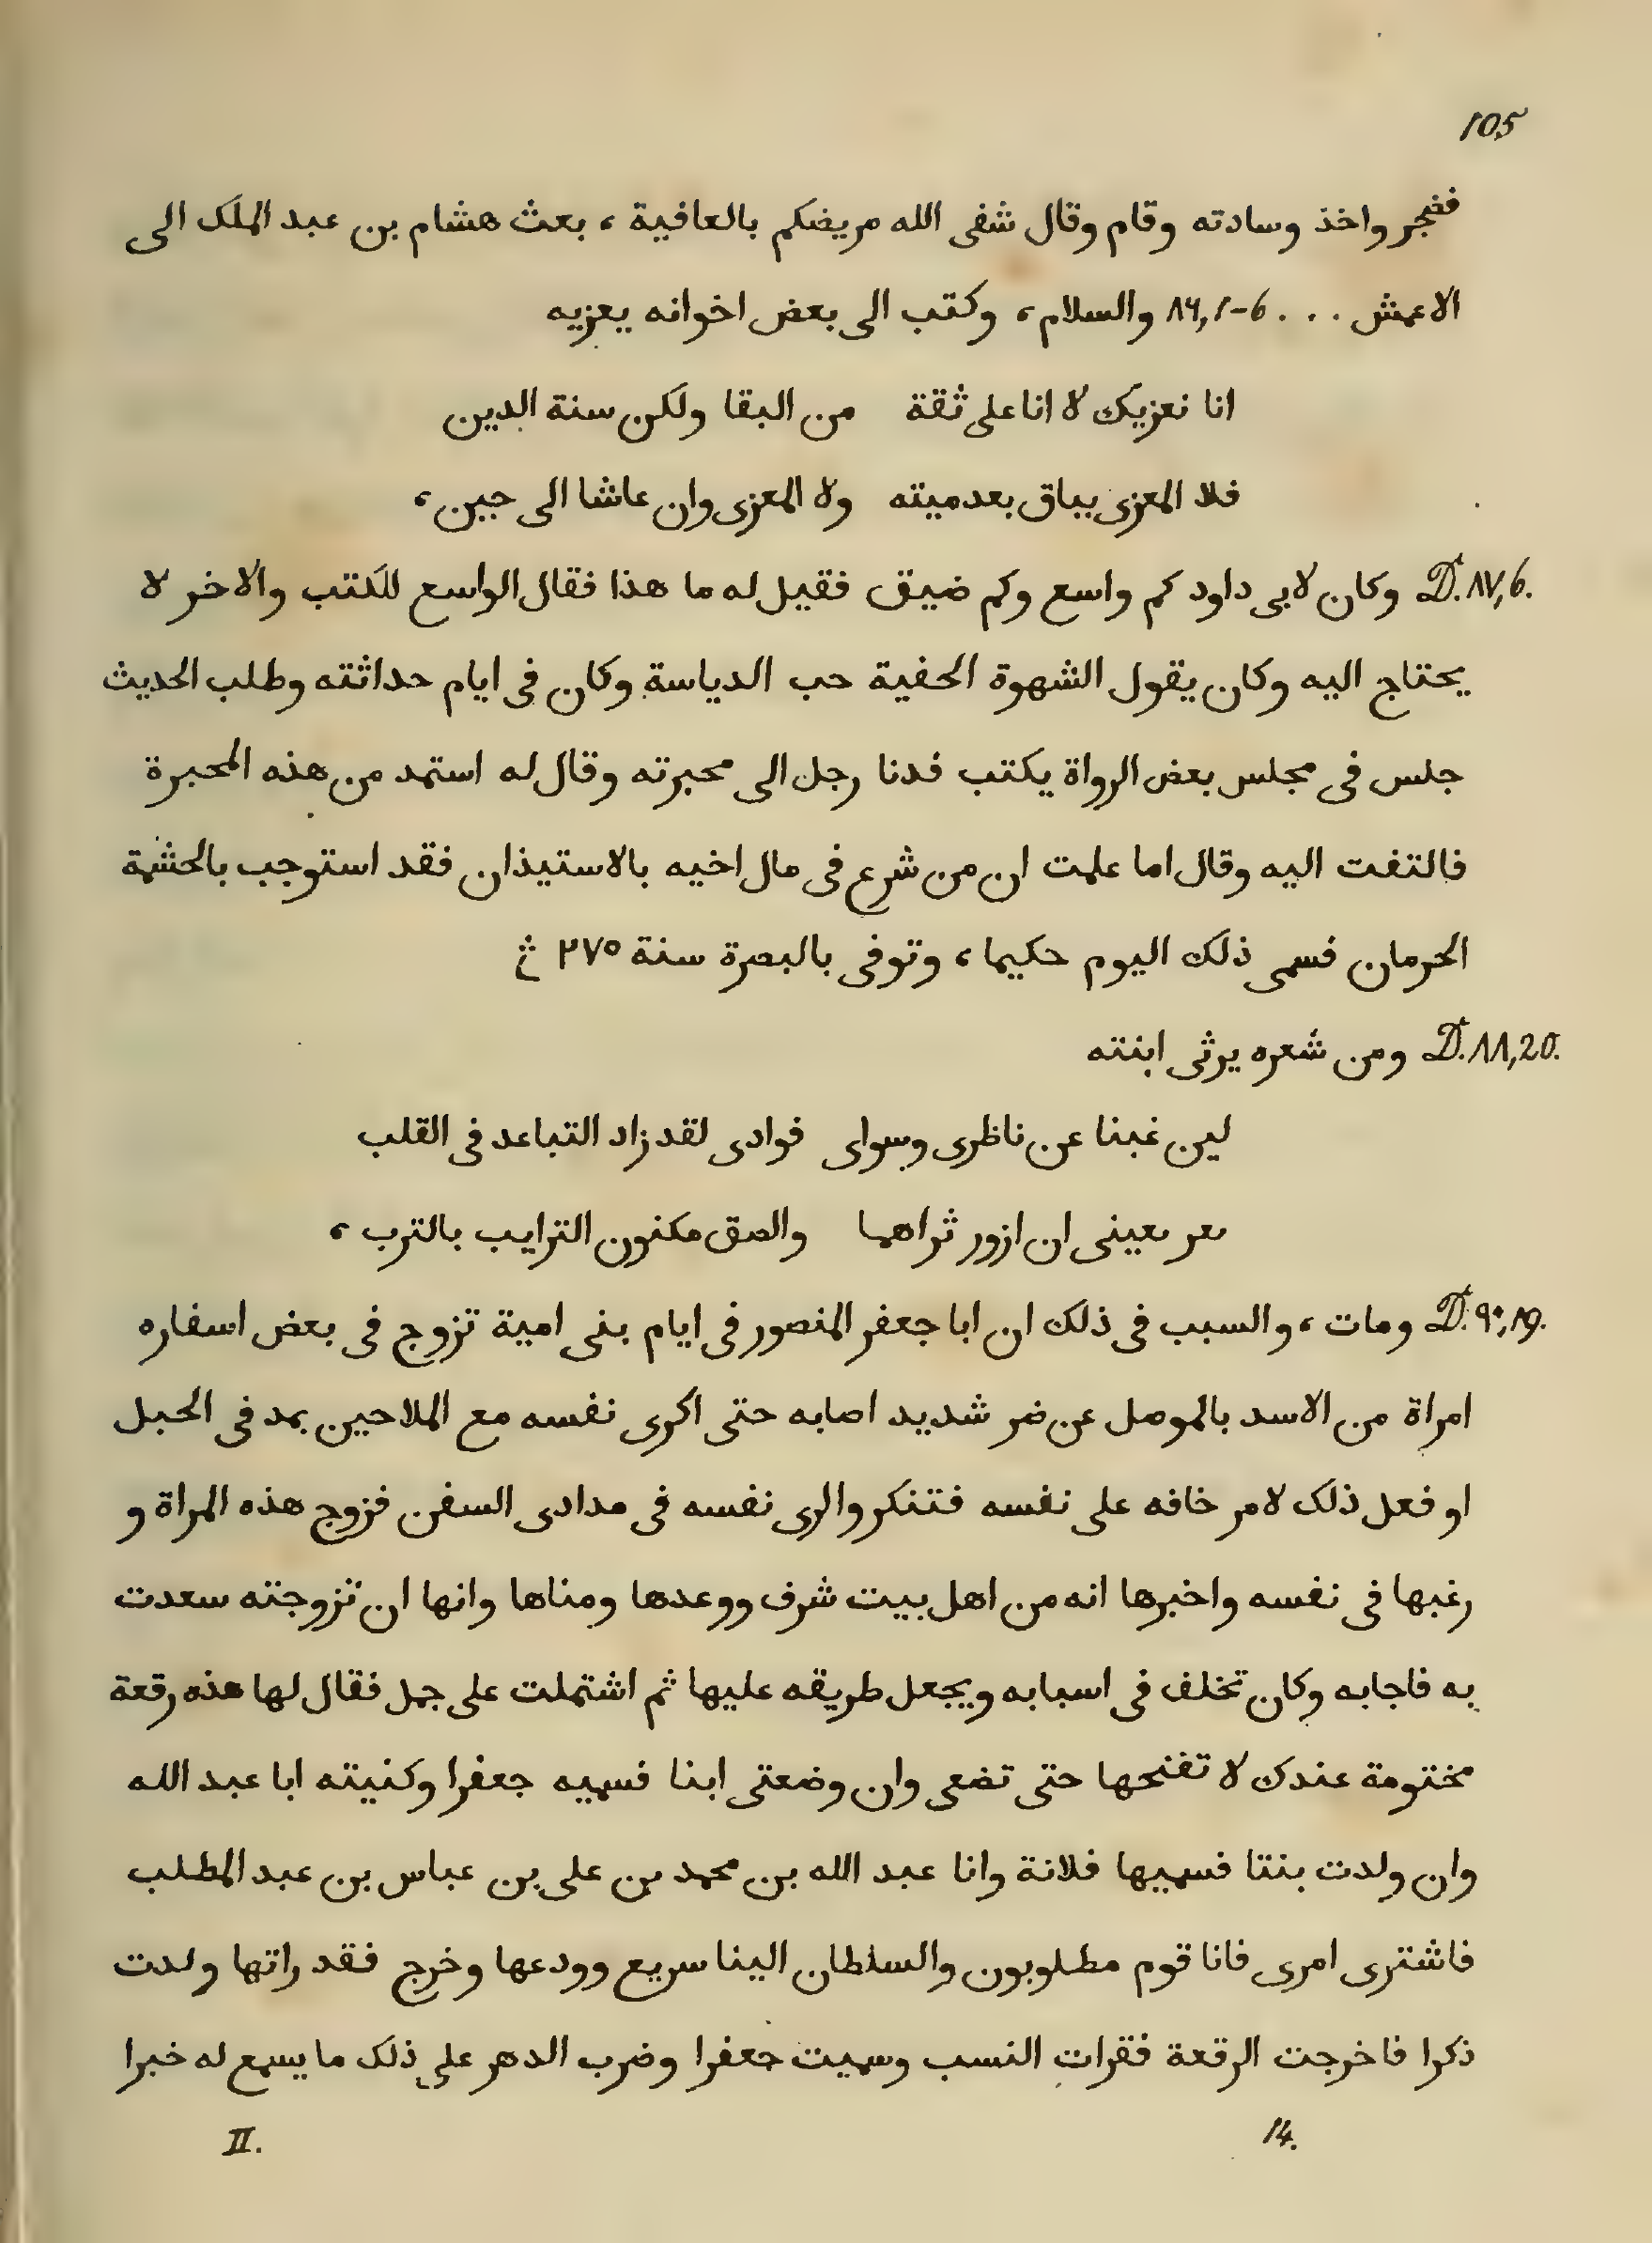 105
فضجر واخذ وسادته وقام وقال شفى الله مريضكم بالعافية ، بعث هشام بن عبد الملك الى
الاعمش . . . ٨٤,1-6 والسلام ، وكتب الى بعض اخوانه يعزيه
انا نعزيك لا انا على ثقة من البقا ولكن سنة الدين
فلا المعزى بباق بعد ميته ولا المعزى وان عاشا الى حين ،
D. ٨٧,6. وكان لابى داود كم واسع وكم ضيق فقيل له ما هذا فقال الواسع للكتب والاخر لا
يحتاج اليه وكان يقول الشهوة الخفية حب الدياسة وكان فى ايام حداثته وطلب الحديث
جلس فى مجلس بعض الرواة يكتب فدنا رجل الى محبرته وقال له استمد من هذه المحبرة
فالتفت اليه وقال اما علمت ان من شرع فى مال اخيه بالاستيذان فقد استوجب بالحشمة
الحرمان فسمى ذلك اليوم حكيما ، وتوفى بالبصرة سنة ٢٧٥
D. ٨٨,20. ومن شعره يرثى ابنته
لين غبنا عن ناظرى وسواى فوادى لقد زاد التباعد فى القلب
معر بعينى ان ازور ثراهما والصق مكنون الترايب بالترب ،
D. ٩٠,19. ومات ، والسبب فى ذلك ان ابا جعفر المنصور فى ايام بنى امية تزوج فى بعض اسفاره
امراة من الاسد بالموصل عن ضر شديد اصابه حتى اكرى نفسه مع الملاحين يمد فى الحبل
او فعل ذلك لامر خافه على نفسه فتنكر والرى نفسه فى مدادى السفن فزوج هذه المراة و
رغبها فى نفسه واخبرها انه من اهل بيت شرف ووعدها ومناها وانها ان تزوجته سعدت
به فاجابه وكان تخلف فى اسبابه ويجعل طريقه عليها ثم اشتملت على حمل فقال لها هذه رقعة
مختومة عندك لا تفتحها حتى تضعى وان وضعتى ابنا فسميه جعفرا وكنيته ابا عبد الله
وان ولدت بنتا فسميها فلانة وانا عبد الله بن محمد بن على بن عباس بن عبد المطلب
فاشترى امرى فانا قوم مطلوبون والسلطان الينا سريع وودعها وخرج فقد راتها ولدت
ذكرا فاخرجت الرقعة فقرات النسب وسميت جعفرا وضرب الدهر على ذلك ما يسمع له خبرا
II. 14.